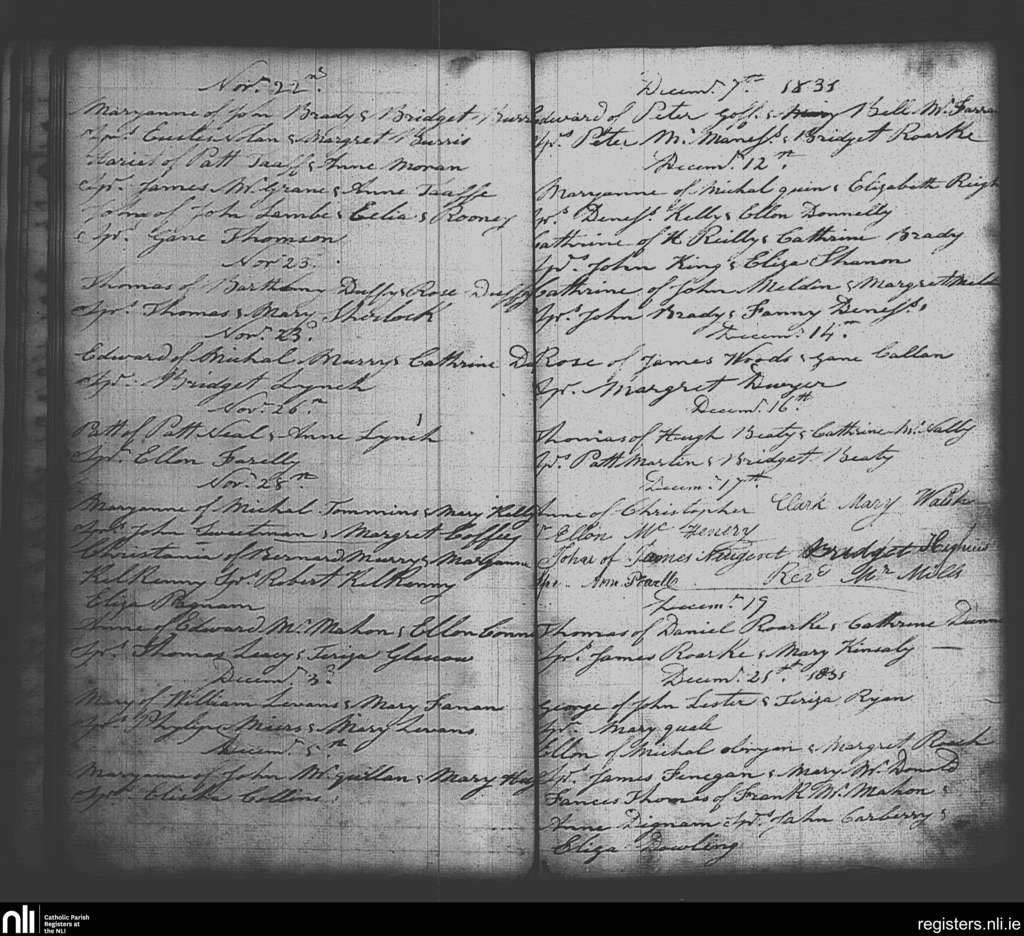 Novr. 22nd
Maryanne of John Brady & Bridget Burr
Sprs. & Margret Burris
of Patt Taaff & Anne Moran
Spr. James Mc Grane & Anne Taaffe
John of John Lambe & Celia & Rooney
Spr. Jane Thomson
Novr 23.
Thomas of Barthemy Duffy & Rose Duffy
Sprs. Thomas & Mary Sherlock
Novr. 23d
Edward of Michal Murry & Cathrine
Spr. Bridget Lynch
Novr. 26th
Patt of Patt Neal & Anne Lynch
Spr. Ellen Farelly
Novr. 28th
Maryanne of Michal Tommins & Mary Kelly
Sprs. John Sweetman & Margret Coffey
Christania of Bernard Murry & Maryanne
Kelkenny Spr. Robert Kelkenny
Eliza Pegnam
Anne of Edward Mc Mahon & Ellen Conne
Sprs. Thomas Leacy & Teriza
Decemr. 3d
Mary of William Levans & Mary Fanan
Sprs. Phylip Miers & Mary Levans
Decemr. 5th
Maryanne of John Mc quillan & Mary
Spr. Elisha Collins
Decemr. 7th 1831
Edward of Peter Goff & Bell Mc Farra
Sprs. Peter Mc Maness & Bridget Roarke
Decemr. 12th
Maryanne of Michal quin & Elizabeth
Sprs. Deness Kelly & Ellen Donnelly
Cathrine of H Reilly & Cathrine Brady
Sprs. John King & Eliza Shanon
Cathrine of John Meldin & Margret
Sprs. John Brady & Fanny Deness
Decemr. 14th
Rose of James Woods & Jane Callan
Spr. Margret Dwyer
Decemr. 16th
Thomas of Hugh Beaty & Cathrine Mc Nally
Sprs. Patt Martin & Bridget Beaty
Decemr. 17th
Anne of Christopher Clark Mary
Ellen Mc Henery
John of James Nugent Bridget
Revd Mr Mills
Decemr. 19
Thomas of Daniel Roarke & Cathrine Dunn
Sprs. James Roarke & Mary Kinsaly
Decemr. 25th 1831
George of John Lester & Teriza Ryan
Spr. Mary quail
Ellen of Michal & Margret Roach
Sprs. James Finegan & Mary Mc Donold
Fances Thomas of Frank Mc Mahon &
Anne Dignam Sprs. John Carberry &
Eliza Dowling
nli Catholic Parish
Registers at
the NLI
registers.nli.ie